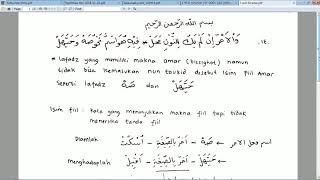 بسم الله الرحمن الرحيم
١٤. وَالْأَمْرُ إِنْ لَمْ يَكُ لِلنُّونِ مَحَلْ * فِيهِ هُوَ اسْمٌ نَحْوُ صَهْ وَحَيَّهَلْ
Lafadz yang memiliki makna amar (bisshighot) namun
tidak bisa kemasukan nun taukid disebut isim fiil amar
Seperti lafadz صَهْ dan حَيَّهَلْ
Isim fiil : kata yang menunjukkan makna fiil tapi tidak
menerima tanda fiil
اسم فعل الامر ← صَهْ - أَمْرٌ بِالصِّيْغَةِ - أُسْكُتْ Diamlah
← حَيَّهَلْ - أَمْرٌ بِالصِّيْغَةِ - أَقْبِلْ menghadaplah